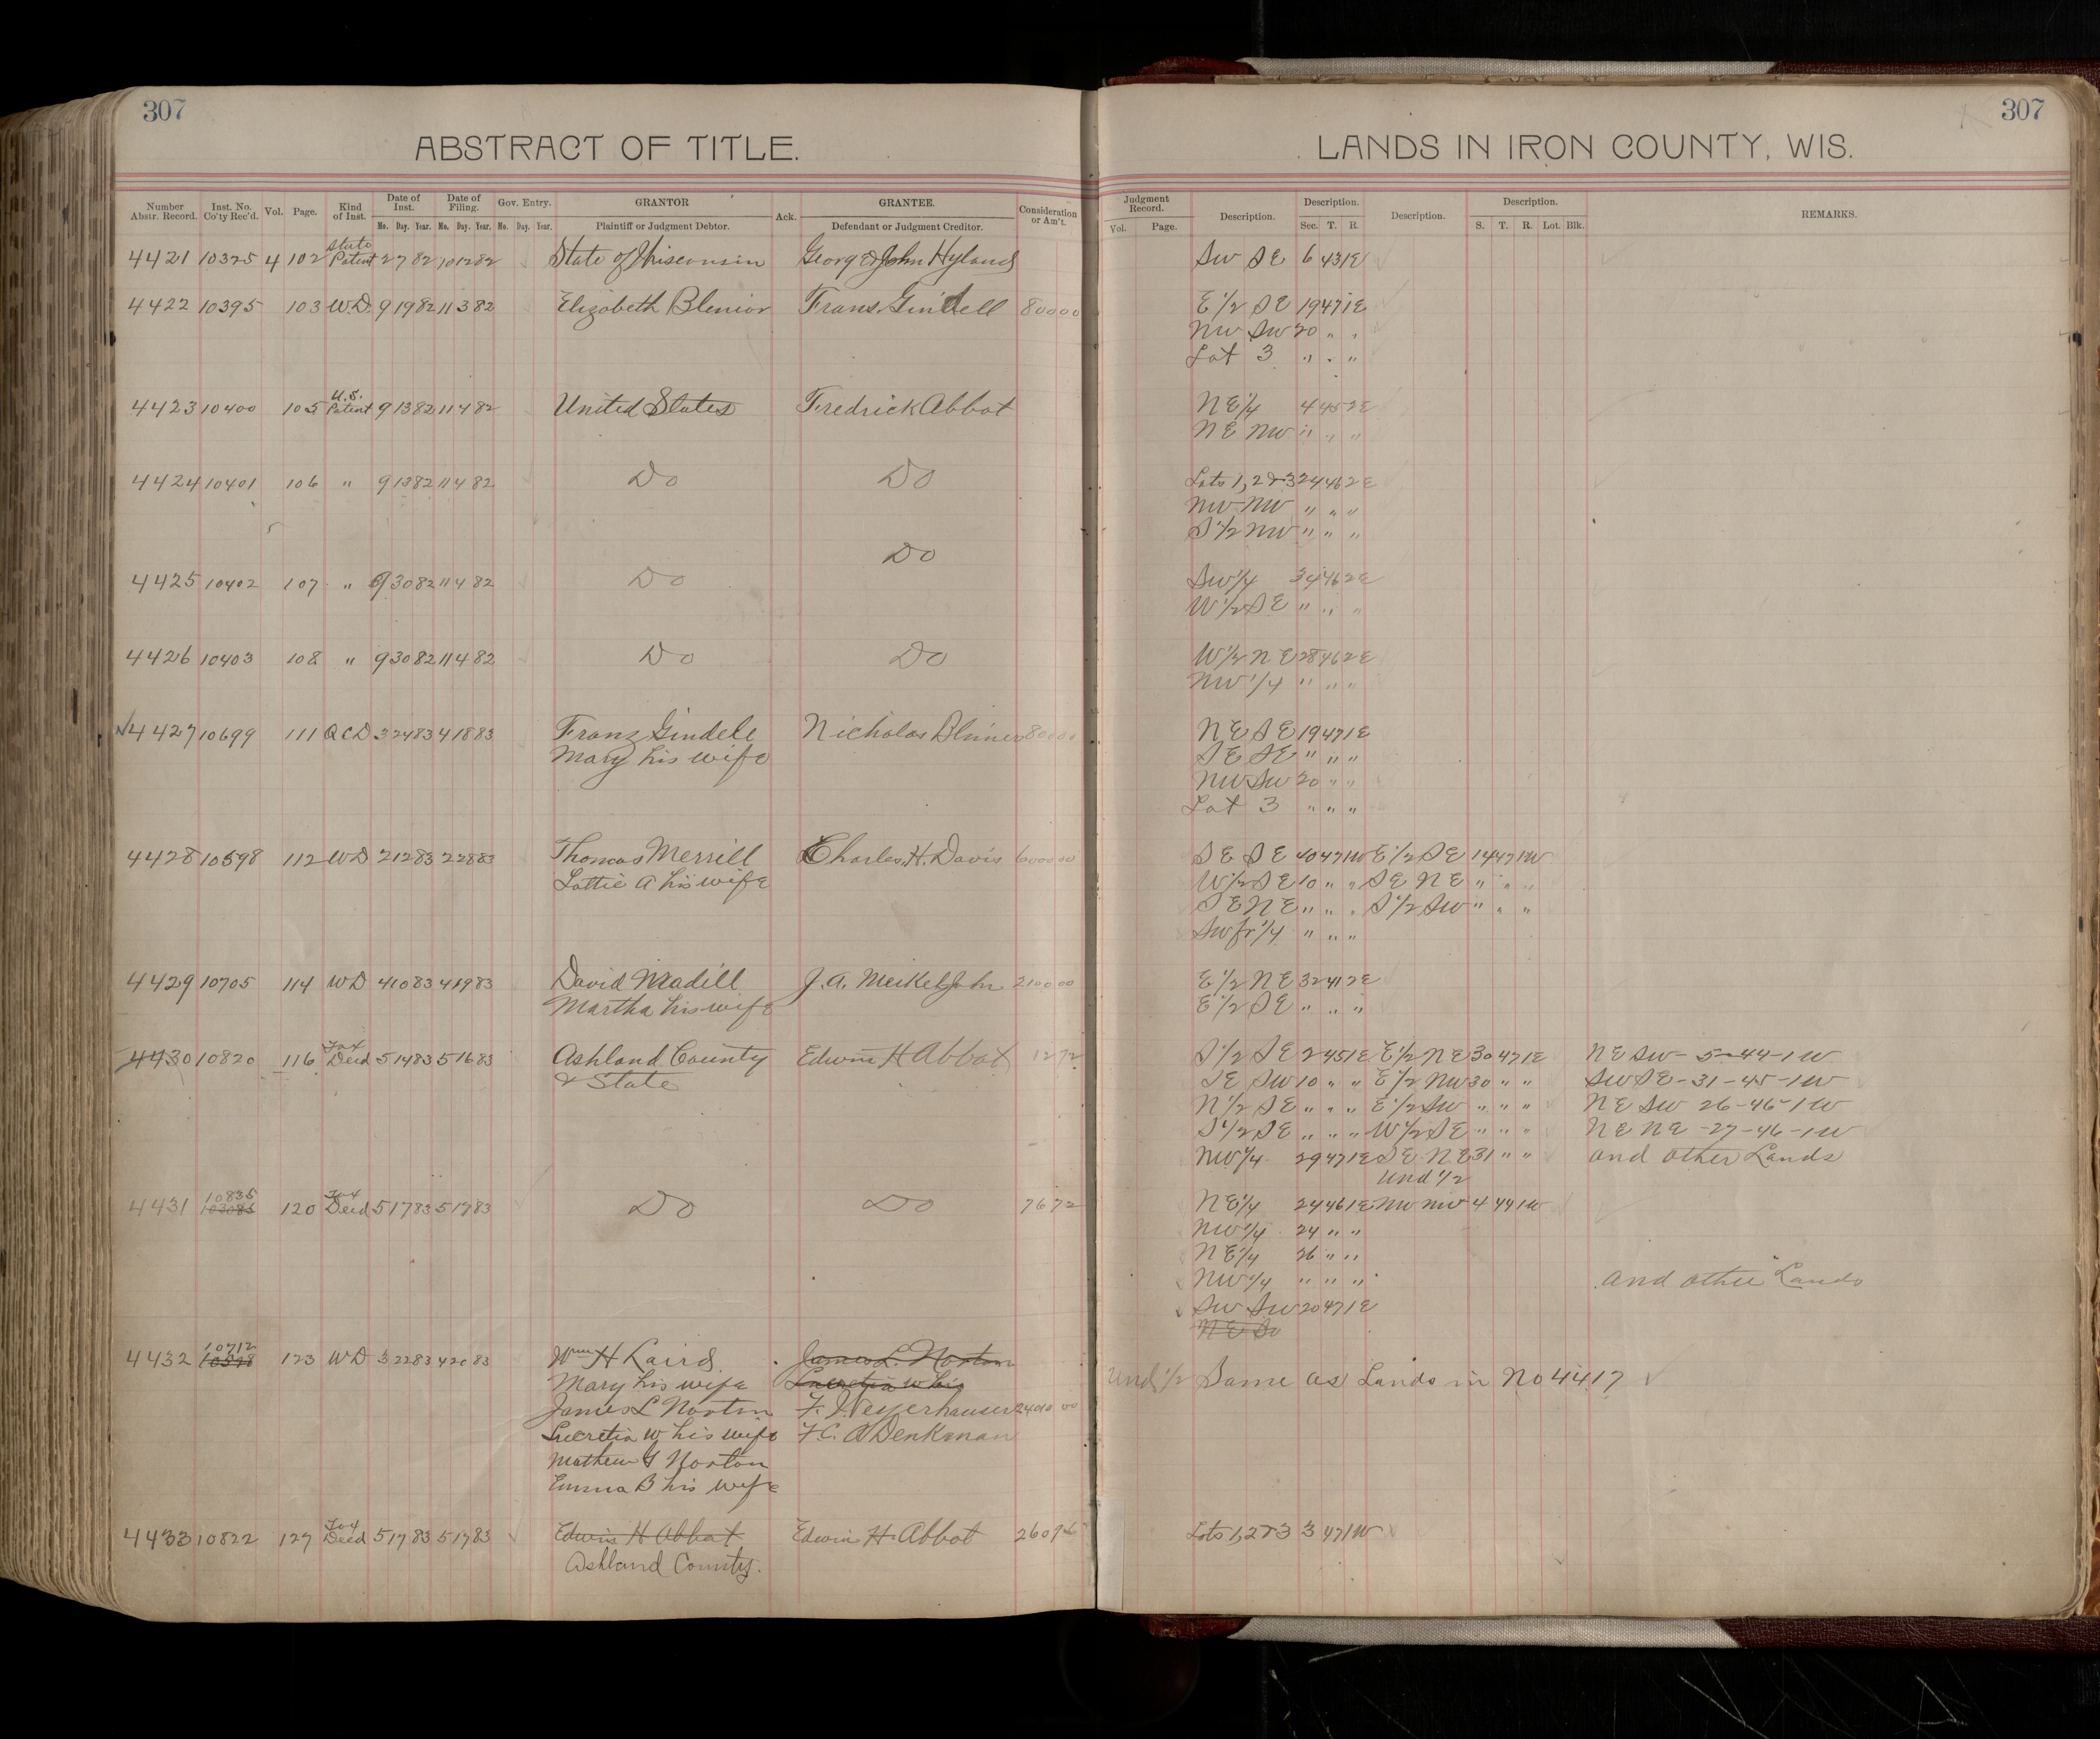 307
ABSTRACT OF TITLE.
Number Abstr. Record. Inst. No. Co'ty Rec'd. Vol. Page. Kind of Inst. Date of Inst. Mo. Day. Year. Date of Filing. Mo. Day. Year. Gov. Entry. Mo. Day. Year. GRANTOR Plaintiff or Judgment Debtor. Ack. GRANTEE. Defendant or Judgment Creditor. Consideration or Am't.
4421 10375 4 102 State Patent 2 7 82 10 12 82 State of Wisconsin George & John Hyland
4422 10395 103 W.D. 9 19 82 11 3 82 Elizabeth Blenior Frans Gindell 800 00
4423 10400 105 U.S. Patent 9 13 82 11 4 82 United States Fredrick Abbot
4424 10401 106 " 9 13 82 11 4 82 Do Do
Do
4425 10402 107 " 9 30 82 11 4 82 Do
4426 10403 108 " 9 30 82 11 4 82 Do Do
4427 10699 111 QCD 3 24 83 4 18 83 Franz Gindele Nicholas 800 00
Mary his wife
4428 10598 112 WD 2 12 83 2 28 83 Thomas Merrill Charles H. Davis 6000 00
Lottie A his wife
4429 10705 114 WD 4 10 83 4 19 83 David Madill J. A. MeikelJohn 2100 00
Martha his wife
4430 10820 116 Tax Deed 5 14 83 5 16 83 Ashland County Edwin H Abbot 12 72
& State
4431 10835 120 Tax Deed 5 17 83 5 17 83 Do Do 76 72
10712
4432 123 WD 3 22 83 4 20 83 Wm H Laird James L. Norton
Mary his wife Lucretia W his
James L Norton F. Weyerhauser 2400 00
Lucretia W his wife F. C. A Denkman
Mathew G Norton
Emma B his wife
4433 10822 127 Tax Deed 5 17 83 5 17 83 Edwin H Abbot Edwin H. Abbot 260 96
Ashland County.
307
LANDS IN IRON COUNTY, WIS.
Judgment Record. Vol. Page. Description. Description. Sec. T. R. Description. Description. S. T. R. Lot. Blk. REMARKS.
SW SE 6 43 1E
E 1/2 SE 19 47 1E
NW SW 20 " "
Lot 3 " " "
NE 1/4 4 45 2E
NE NW " " "
Lots 1, 2 & 3 24 46 2E
NW NW " " "
S 1/2 NW " " "
SW 1/4 34 46 2E
W 1/2 SE " " "
W 1/2 NE 28 46 2E
NW 1/4 " " "
NE SE 19 47 1E
SE SE " " "
NW SW 20 " "
Lot 3 " " "
SE SE 47 1W E 1/2 SE 14 47 1W
W 1/2 SE 10 " " SE NE " " "
SE NE " " " S 1/2 SW " " "
SW fr 1/4 " " "
E 1/2 NE 32 41 2E
E 1/2 SE " " "
S 1/2 SE 2 45 1E E 1/2 NE 30 47 1E NE SW - 5 - 44 - 1W
SE SW 10 " " E 1/2 NW 30 " " SW SE - 31 - 45 - 1W
N 1/2 SE " " " E 1/2 SW " " " NE SW 26 - 46 - 1W
S 1/2 SE " " " W 1/2 SE " " " NE NE - 27 - 46 - 1W
NW 1/4 29 47 1E SE NE 31 " " and other Lands
Und 1/2
NE 1/4 24 46 1E NW NW 4 44 1W
NW 1/4 24 " "
NE 1/4 26 " "
NW 1/4 " " " and other Lands
SW SW 20 47 1E
NE
Und 1/2 Same as Lands in No 4417
Lots 1, 2 & 3 3 47 1W